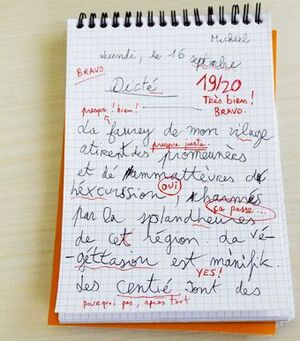 Michaël
Lundi, le 16 septembre
BRAVO
Dicté
19/20
Très bien !
BRAVO.
presque ! bien !
La faurey de mon vilage
presque juste
atirent des promeunères
et dé ammatteures dé
oui
héxcurssion, charmés
ça passe...
par la splandheures
de cet région. La vé-
géttasion est manifik.
YES !
Les centié sont des
pourquoi pas, après tout